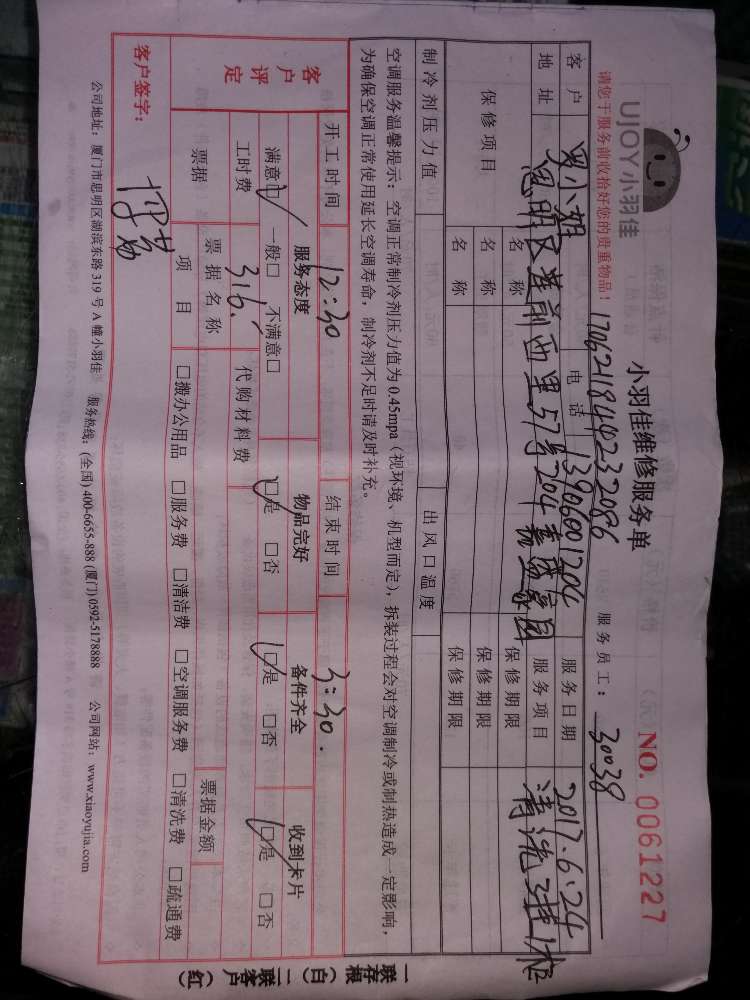 UJOY小羽佳
小羽佳维修服务单
NO. 0061227
请您于服务前收拾好您的贵重物品!
17062118449232086
服务员工: 30038
客户 罗小姐 电话 13906001204 服务日期 2017.6.24
地址 思明区莲前西里57号204 服务项目 清洗3挂1柜
保修项目 名称 保修期限
名称 保修期限
名称 保修期限
制冷剂压力值 出风口温度
空调服务温馨提示:空调正常制冷剂压力值为0.45mpa(视环境、机型而定),拆装过程会对空调制冷或制热造成一定影响,
为确保空调正常使用延长空调寿命,制冷剂不足时请及时补充。
开工时间 12:30 结束时间 3:30.
客户评定 服务态度 物品完好 备件齐全 收到卡片
满意□ 一般□ 不满意□ □是 □否 □是 □否 □是 □否
工时费 316. 代购材料费
票据 票据名称 票据金额
项目 □搬办公用品 □服务费 □清洁费 □空调服务费 □清洗费 □疏通费
客户签字:
公司地址:厦门市思明区湖滨东路319号A幢小羽佳 服务热线:(全国)400-6655-888 (厦门)0592-5178888 公司网站:www.xiaoyujia.com
一联存根(白)二联客户(红)